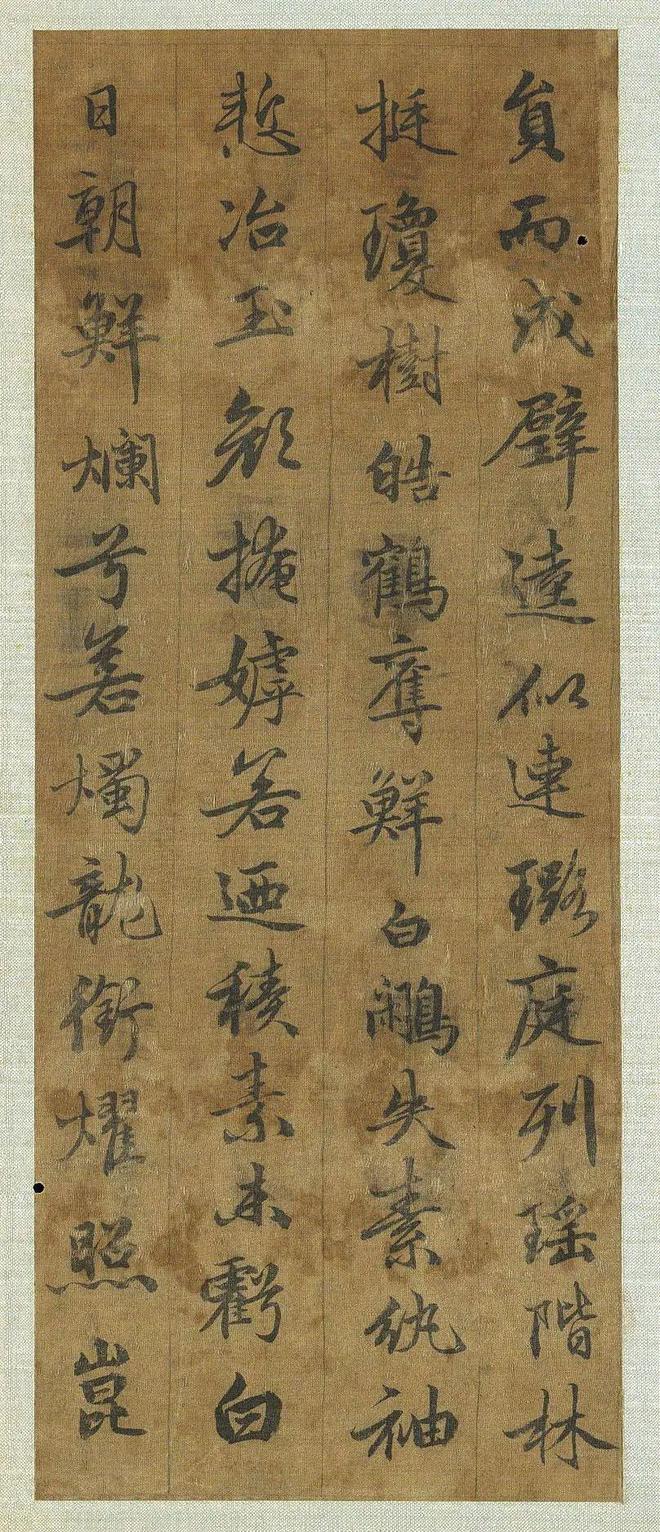 員而成璧逵似連璐庭列瑶階林
挺瓊樹皓鶴奪鮮白鷴失素紈袖
慙冶玉顔掩嫭若迺積素未虧白
日朝鮮爛兮若燭龍銜燿照崑